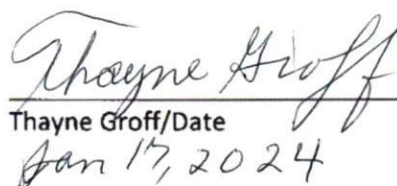 Thayne Groff
Thayne Groff/Date
Jan 17, 2024